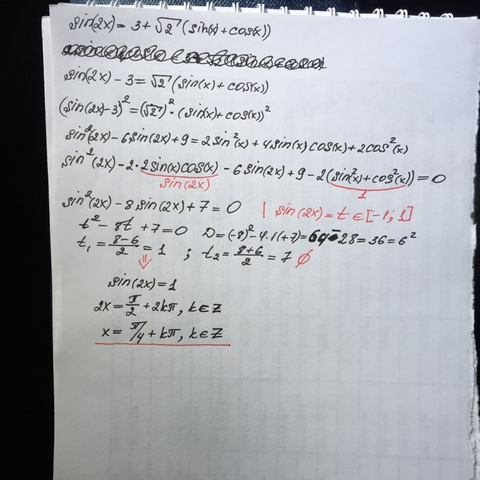 sin(2x) = 3 + √2 (sin(x) + cos(x))
sin(2x) - 3 = √2 (sin(x) + cos(x))
(sin(2x) - 3)² = (√2)² · (sin(x) + cos(x))²
sin²(2x) - 6sin(2x) + 9 = 2sin²(x) + 4sin(x)cos(x) + 2cos²(x)
sin²(2x) - 2 · 2sin(x)cos(x) - 6sin(2x) + 9 - 2(sin²(x) + cos²(x)) = 0
sin(2x) 1
sin²(2x) - 8sin(2x) + 7 = 0 | sin(2x) = t ∈ [-1; 1]
t² - 8t + 7 = 0 D = (-8)² - 4·1(+7) = 64 - 28 = 36 = 6²
t₁ = (8-6)/2 = 1 ; t₂ = (8+6)/2 = 7 ∅
⇓
sin(2x) = 1
2x = π/2 + 2kπ, k∈Z
x = π/4 + kπ, k∈Z